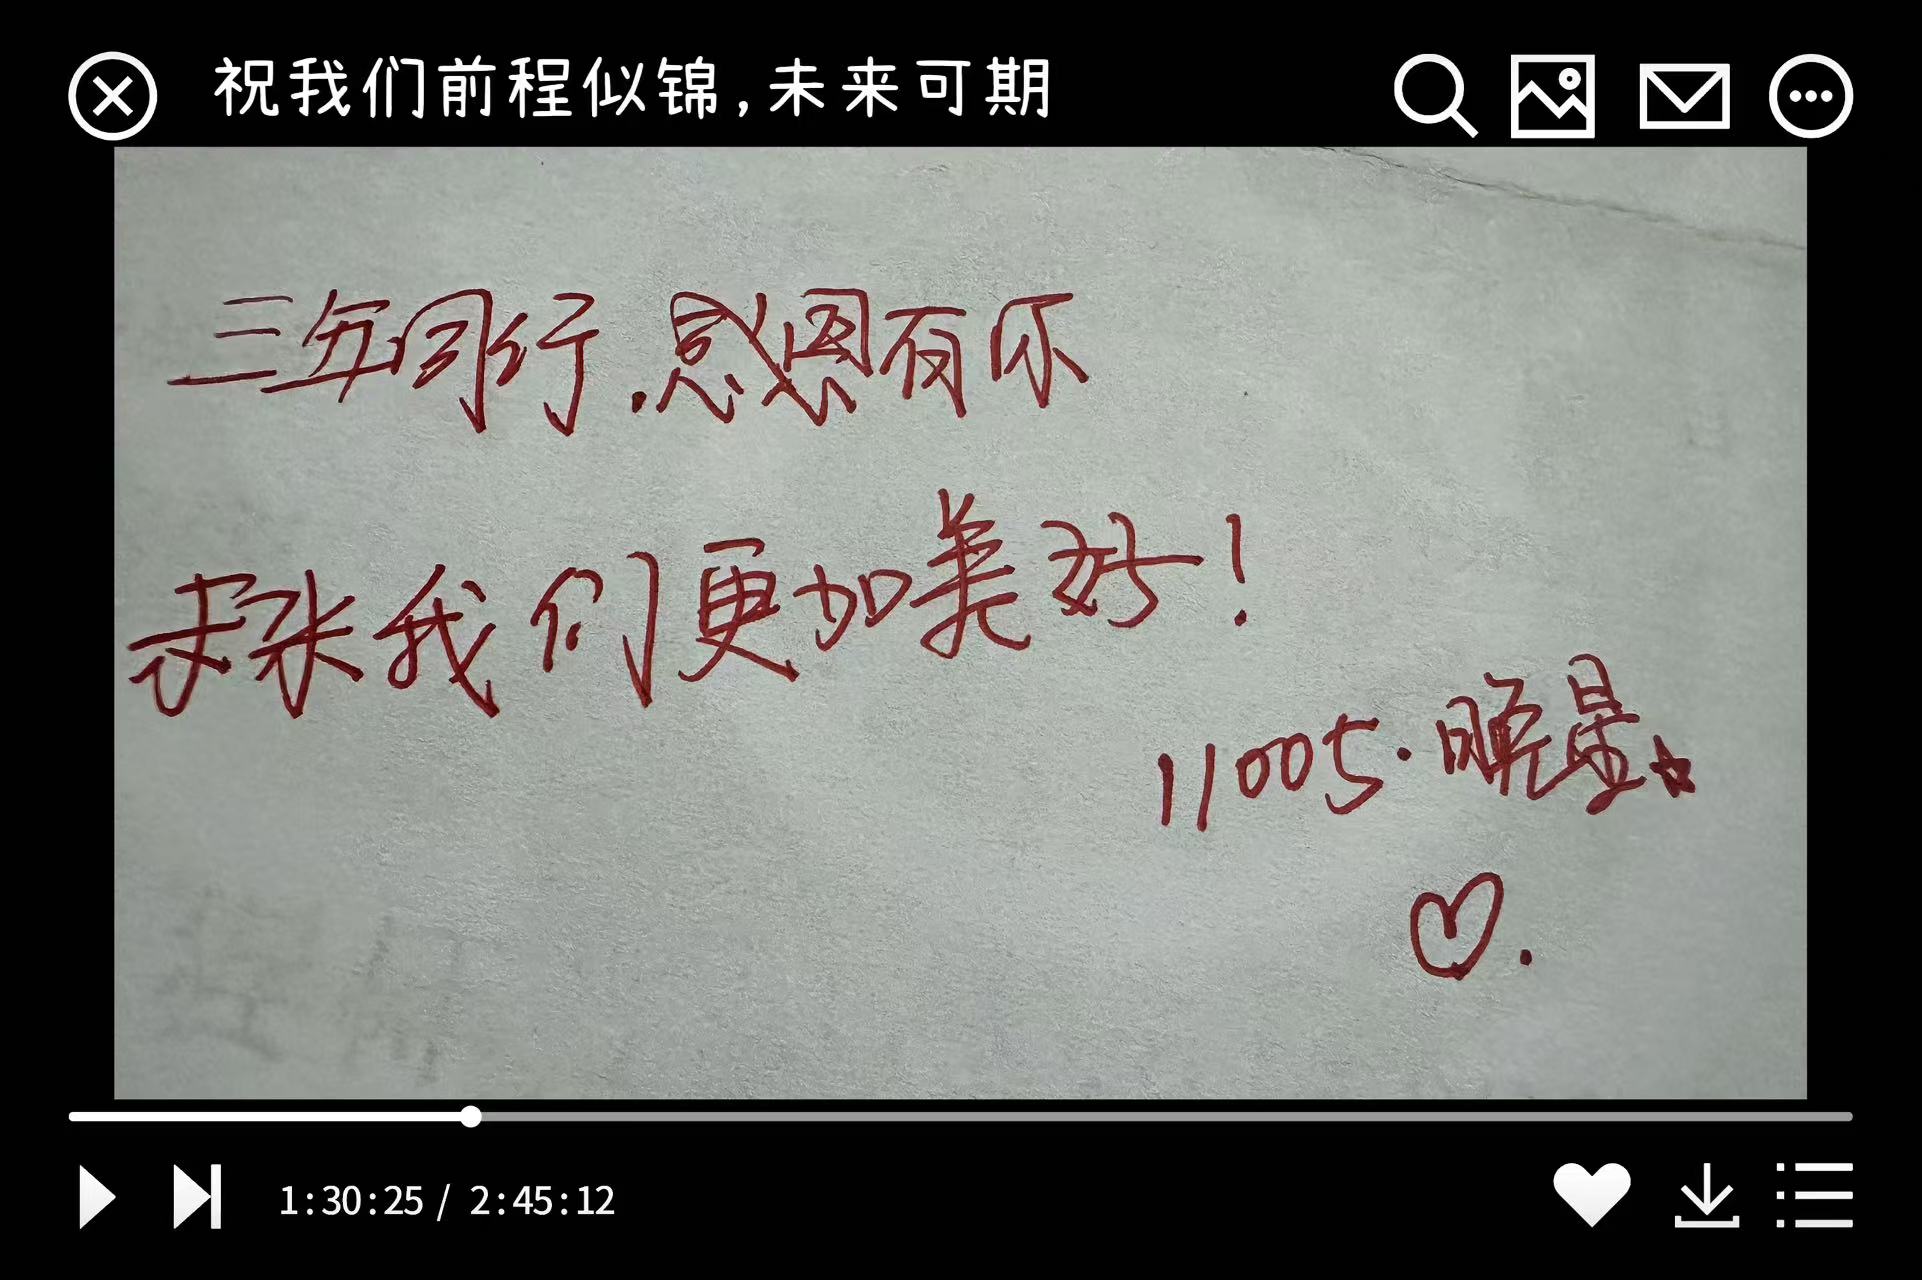 祝我们前程似锦,未来可期
三年同行.感恩有你
未来我们更加美好!
11005·晚星
1:30:25 / 2:45:12